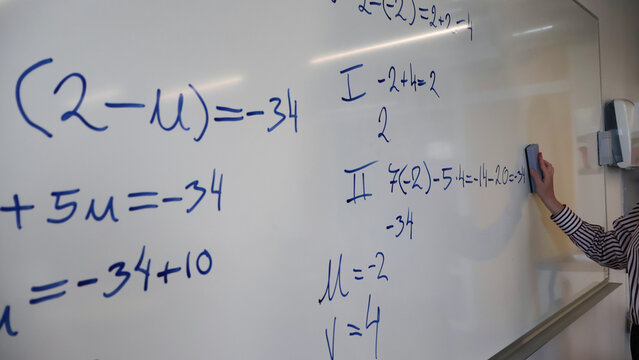 (2-u)=-34
+5u=-34
u=-34+10
2-(-2)=2+2=4
I -2+4=2
2
II 7(-2)-5·4=-14-20=-34
-34
u=-2
v=4